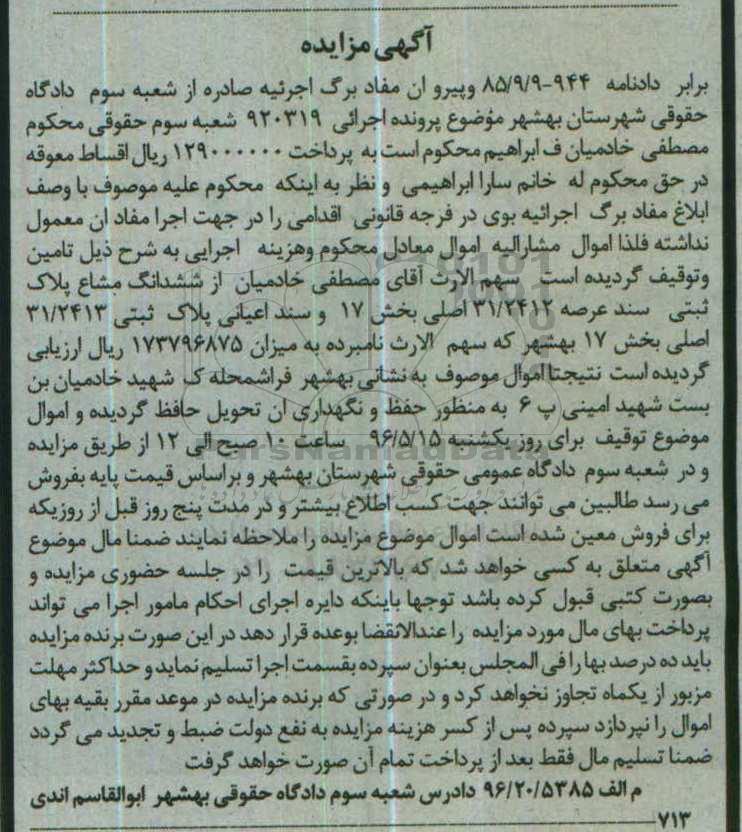 آگهی مزایده
برابر دادنامه ۹۴۴-۸۵/۹/۹ وپیرو ان مفاد برگ اجرئیه صادره از شعبه سوم دادگاه
حقوقی شهرستان بهشهر مؤضوع پرونده اجرائی ۹۲۰۳۱۹ شعبه سوم حقوقی محکوم
مصطفی خادمیان ف ابراهیم محکوم است به پرداخت ۱۲۹۰۰۰۰۰۰ ریال اقساط معوقه
در حق محکوم له خانم سارا ابراهیمی و نظر به اینکه محکوم علیه موصوف با وصف
ابلاغ مفاد برگ اجرائیه بوی در فرجه قانونی اقدامی را در جهت اجرا مفاد ان معمول
نداشته فلذا اموال مشارالیه اموال معادل محکوم وهزینه اجرایی به شرح ذیل تامین
وتوقیف گردیده است سهم الارث آقای مصطفی خادمیان از ششدانگ مشاع پلاک
ثبتی سند عرصه ۳۱/۲۴۱۲ اصلی بخش ۱۷ و سند اعیانی پلاک ثبتی ۳۱/۲۴۱۳
اصلی بخش ۱۷ بهشهر که سهم الارث نامبرده به میزان ۱۷۳۷۹۶۸۷۵ ریال ارزیابی
گردیده است نتیجتا اموال موصوف به نشانی بهشهر فراشمحله ک شهید خادمیان بن
بست شهید امینی پ ۶ به منظور حفظ و نگهداری ان تحویل حافظ گردیده و اموال
موضوع توقیف برای روز یکشنبه ۹۶/۵/۱۵ ساعت ۱۰ صبح الی ۱۲ از طریق مزایده
و در شعبه سوم دادگاه عمومی حقوقی شهرستان بهشهر و براساس قیمت پایه بفروش
می رسد طالبین می توانند جهت کسب اطلاع بیشتر و در مدت پنج روز قبل از روزیکه
برای فروش معین شده است اموال موضوع مزایده را ملاحظه نمایند ضمنا مال موضوع
آگهی متعلق به کسی خواهد شد که بالاترین قیمت را در جلسه حضوری مزایده و
بصورت کتبی قبول کرده باشد توجها باینکه دایره اجرای احکام مامور اجرا می تواند
پرداخت بهای مال مورد مزایده را عندالانقضا بوعده قرار دهد در این صورت برنده مزایده
باید ده درصد بها را فی المجلس بعنوان سپرده بقسمت اجرا تسلیم نماید و حداکثر مهلت
مزبور از یکماه تجاوز نخواهد کرد و در صورتی که برنده مزایده در موعد مقرر بقیه بهای
اموال را نپردازد سپرده پس از کسر هزینه مزایده به نفع دولت ضبط و تجدید می گردد
ضمنا تسلیم مال فقط بعد از پرداخت تمام آن صورت خواهد گرفت
م الف ۹۶/۲۰/۵۳۸۵ دادرس شعبه سوم دادگاه حقوقی بهشهر ابوالقاسم اندی
۷۱۳
ParsNamadData